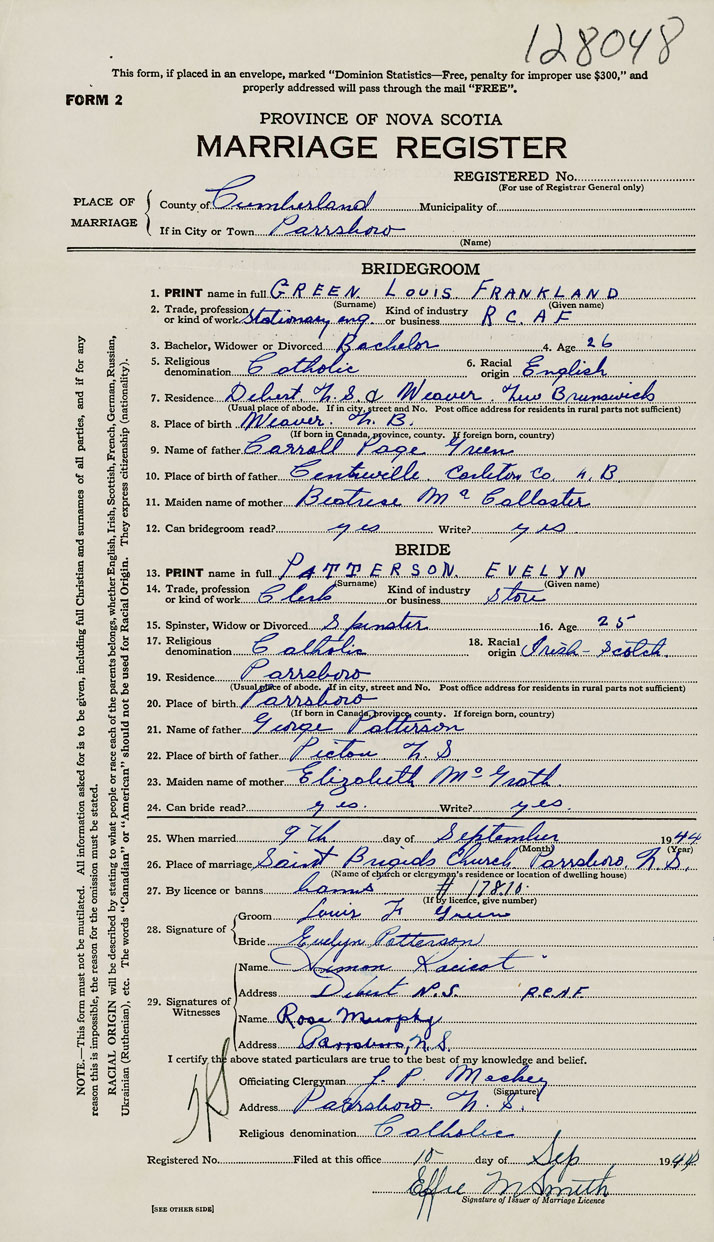 128048
This form, if placed in an envelope, marked "Dominion Statistics—Free, penalty for improper use $300," and
properly addressed will pass through the mail "FREE".
FORM 2
PROVINCE OF NOVA SCOTIA
MARRIAGE REGISTER
REGISTERED No.
(For use of Registrar General only)
PLACE OF MARRIAGE
County of Cumberland Municipality of
If in City or Town Parrsboro
(Name)
BRIDEGROOM
1. PRINT name in full GREEN LOUIS FRANKLAND
(Surname) (Given name)
2. Trade, profession or kind of work Stationary eng. Kind of industry or business R C A F
3. Bachelor, Widower or Divorced Bachelor 4. Age 26
5. Religious denomination Catholic 6. Racial origin English
7. Residence Debert N.S. & Weaver New Brunswick
(Usual place of abode. If in city, street and No. Post office address for residents in rural parts not sufficient)
8. Place of birth Weaver N.B.
(If born in Canada, province, county. If foreign born, country)
9. Name of father Carroll Page Green
10. Place of birth of father Centreville Carleton Co. N.B
11. Maiden name of mother Beatrice Mc Collaster
12. Can bridegroom read? yes Write? yes
BRIDE
13. PRINT name in full PATTERSON EVELYN
(Surname) (Given name)
14. Trade, profession or kind of work Clerk Kind of industry or business Store
15. Spinster, Widow or Divorced Spinster 16. Age 25
17. Religious denomination Catholic 18. Racial origin Irish-Scotch.
19. Residence Parrsboro
(Usual place of abode. If in city, street and No. Post office address for residents in rural parts not sufficient)
20. Place of birth Parrsboro
(If born in Canada, province, county. If foreign born, country)
21. Name of father George Patterson
22. Place of birth of father Pictou N.S
23. Maiden name of mother Elizabeth McGrath.
24. Can bride read? yes. Write? yes.
25. When married 9th day of September 1944
(Month) (Year)
26. Place of marriage Saint Brigids Church Parrsboro, N.S,
(Name of church or clergyman's residence or location of dwelling house)
27. By licence or banns banns # 17810.
(If by licence, give number)
28. Signature of
Groom Louis F Green
Bride Evelyn Patterson
29. Signatures of Witnesses
Name Racicot
Address Debert N.S. R.C.A.F.
Name Rose Murphy
Address Parrsboro, N.S.
I certify the above stated particulars are true to the best of my knowledge and belief.
Officiating Clergyman J. P. Mackey
(Signature)
Address Parrsboro N.S.
Religious denomination Catholic
Registered No. Filed at this office 15 day of Sep 1944
Effie M Smith
Signature of Issuer of Marriage Licence
[SEE OTHER SIDE]
NOTE.—This form must not be mutilated. All information asked for is to be given, including full Christian and surnames of all parties, and if for any
reason this is impossible, the reason for the omission must be stated.
RACIAL ORIGIN will be described by stating to what people or race each of the parents belongs, whether English, Irish, Scottish, French, German, Russian,
Ukrainian (Ruthenian), etc. The words "Canadian" or "American" should not be used for Racial Origin. They express citizenship (nationality).